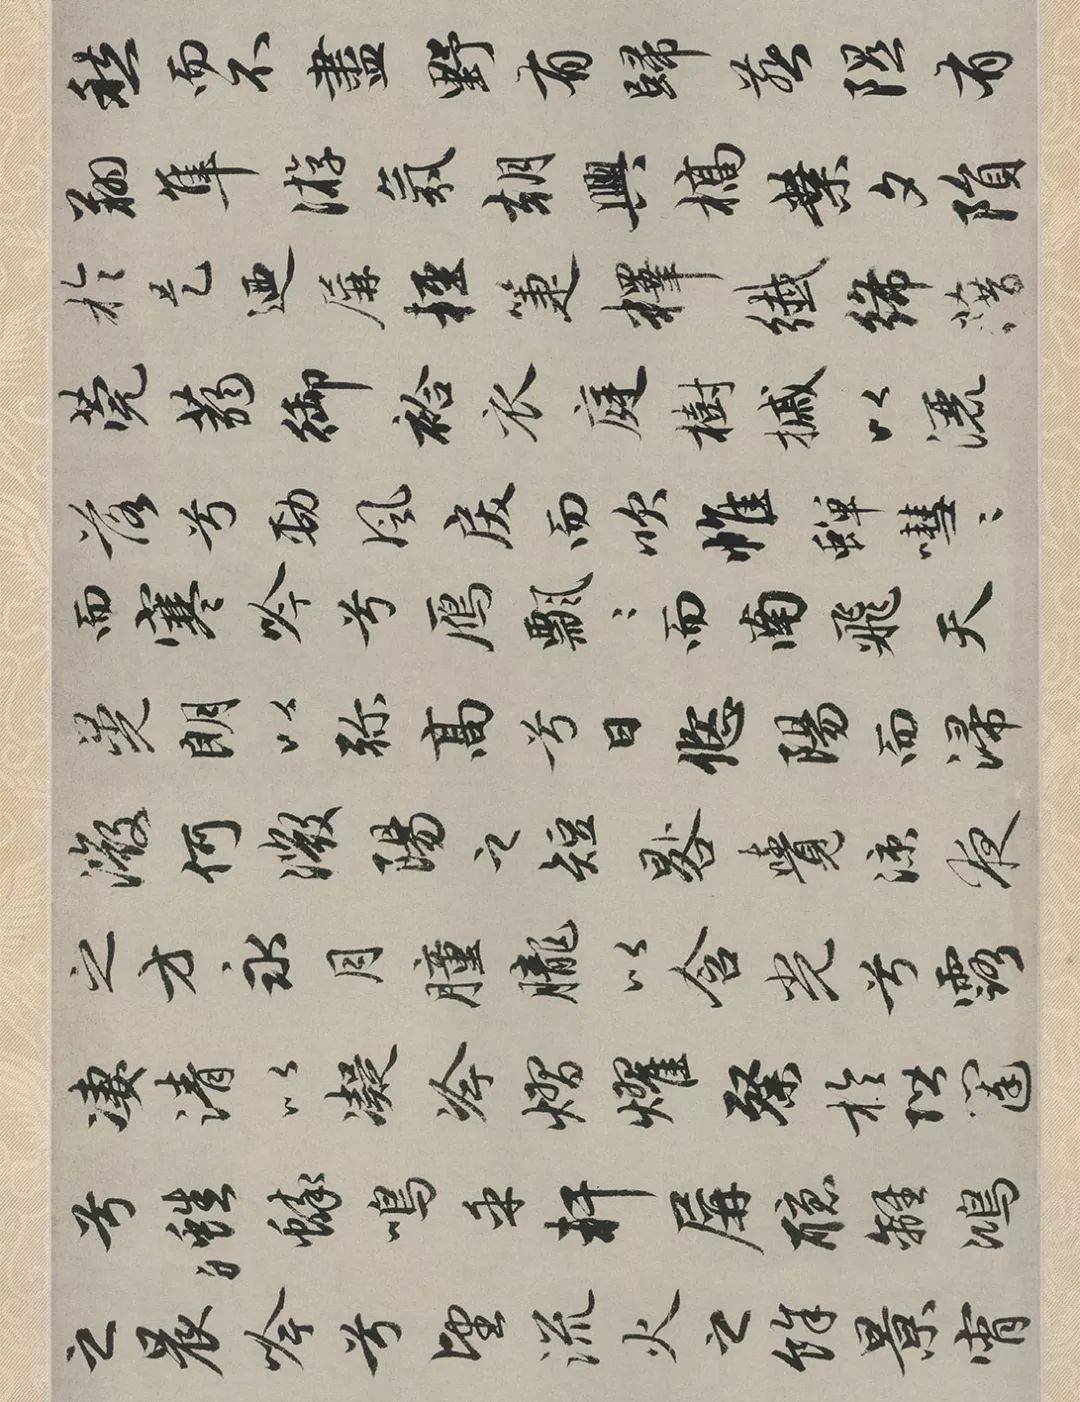 愁而不盡野有歸燕隰有
翔隼游氛朝興槁葉夕隕
於是迺屏輕箑釋纖絺藉
莞蒻御袷衣庭樹槭以洒
落兮勁風戾而吹帷蟬嘒〻
而寒吟兮鴈飄〻而南飛天
晃朗以弥高兮日悠陽而浸
微何微陽之短晷覺涼夜
之方永月朣朧以含光兮露
凄清以凝冷熠燿粲於階闥
兮蟋蟀鳴乎軒屏聽離鴻
之晨吟兮望流火之餘景宵